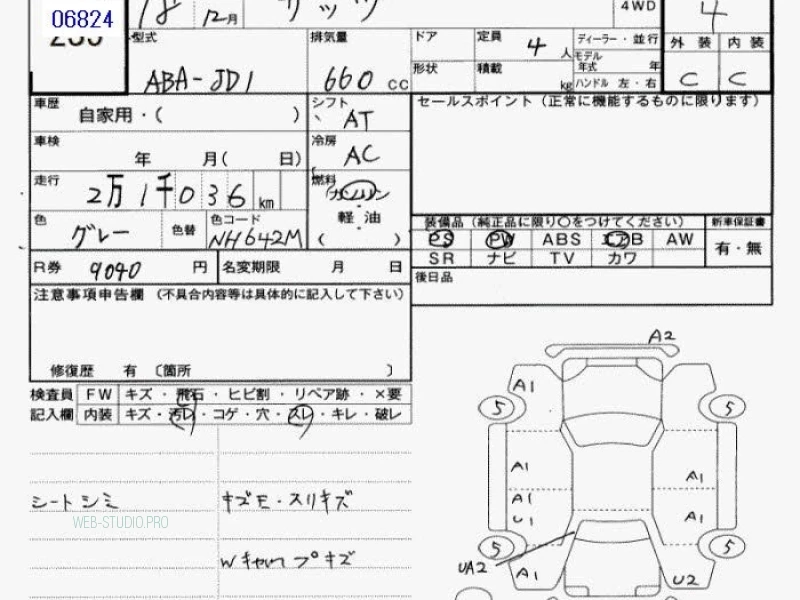 06824
18 12月 ザッツ 4WD 4
型式 排気量 ドア 定員 4 人 ディーラー・並行
モデル年式 年
外装 内装
ABA-JD1 660 cc 形状 積載 kg ハンドル 左・右 C C
車歴 自家用・( ) シフト AT セールスポイント (正常に機能するものに限ります)
車検 年 月( 日) 冷房 AC
走行 2万1千036 km 燃料 ガソリン
軽油
( )
色 グレー 色替 色コード NH642M
装備品 (純正品に限り○をつけてください) 新車保証書
PS PW ABS エアB AW 有・無
SR ナビ TV カワ
R券 9040 円 名変期限 月 日 後日品
注意事項申告欄 (不具合内容等は具体的に記入して下さい)
修復歴 有 〔箇所 〕
検査員 FW キズ・飛石・ヒビ割・リペア跡・×要
記入欄 内装 キズ・汚レ・コゲ・穴・スレ・キレ・破レ
シートシミ キズモ・スリキズ
WEB-STUDIO.PRO
Wキャップキズ
A2
A1
5 5
A1 A1
A1 A1
U1
5 5
UA2 A1 U2